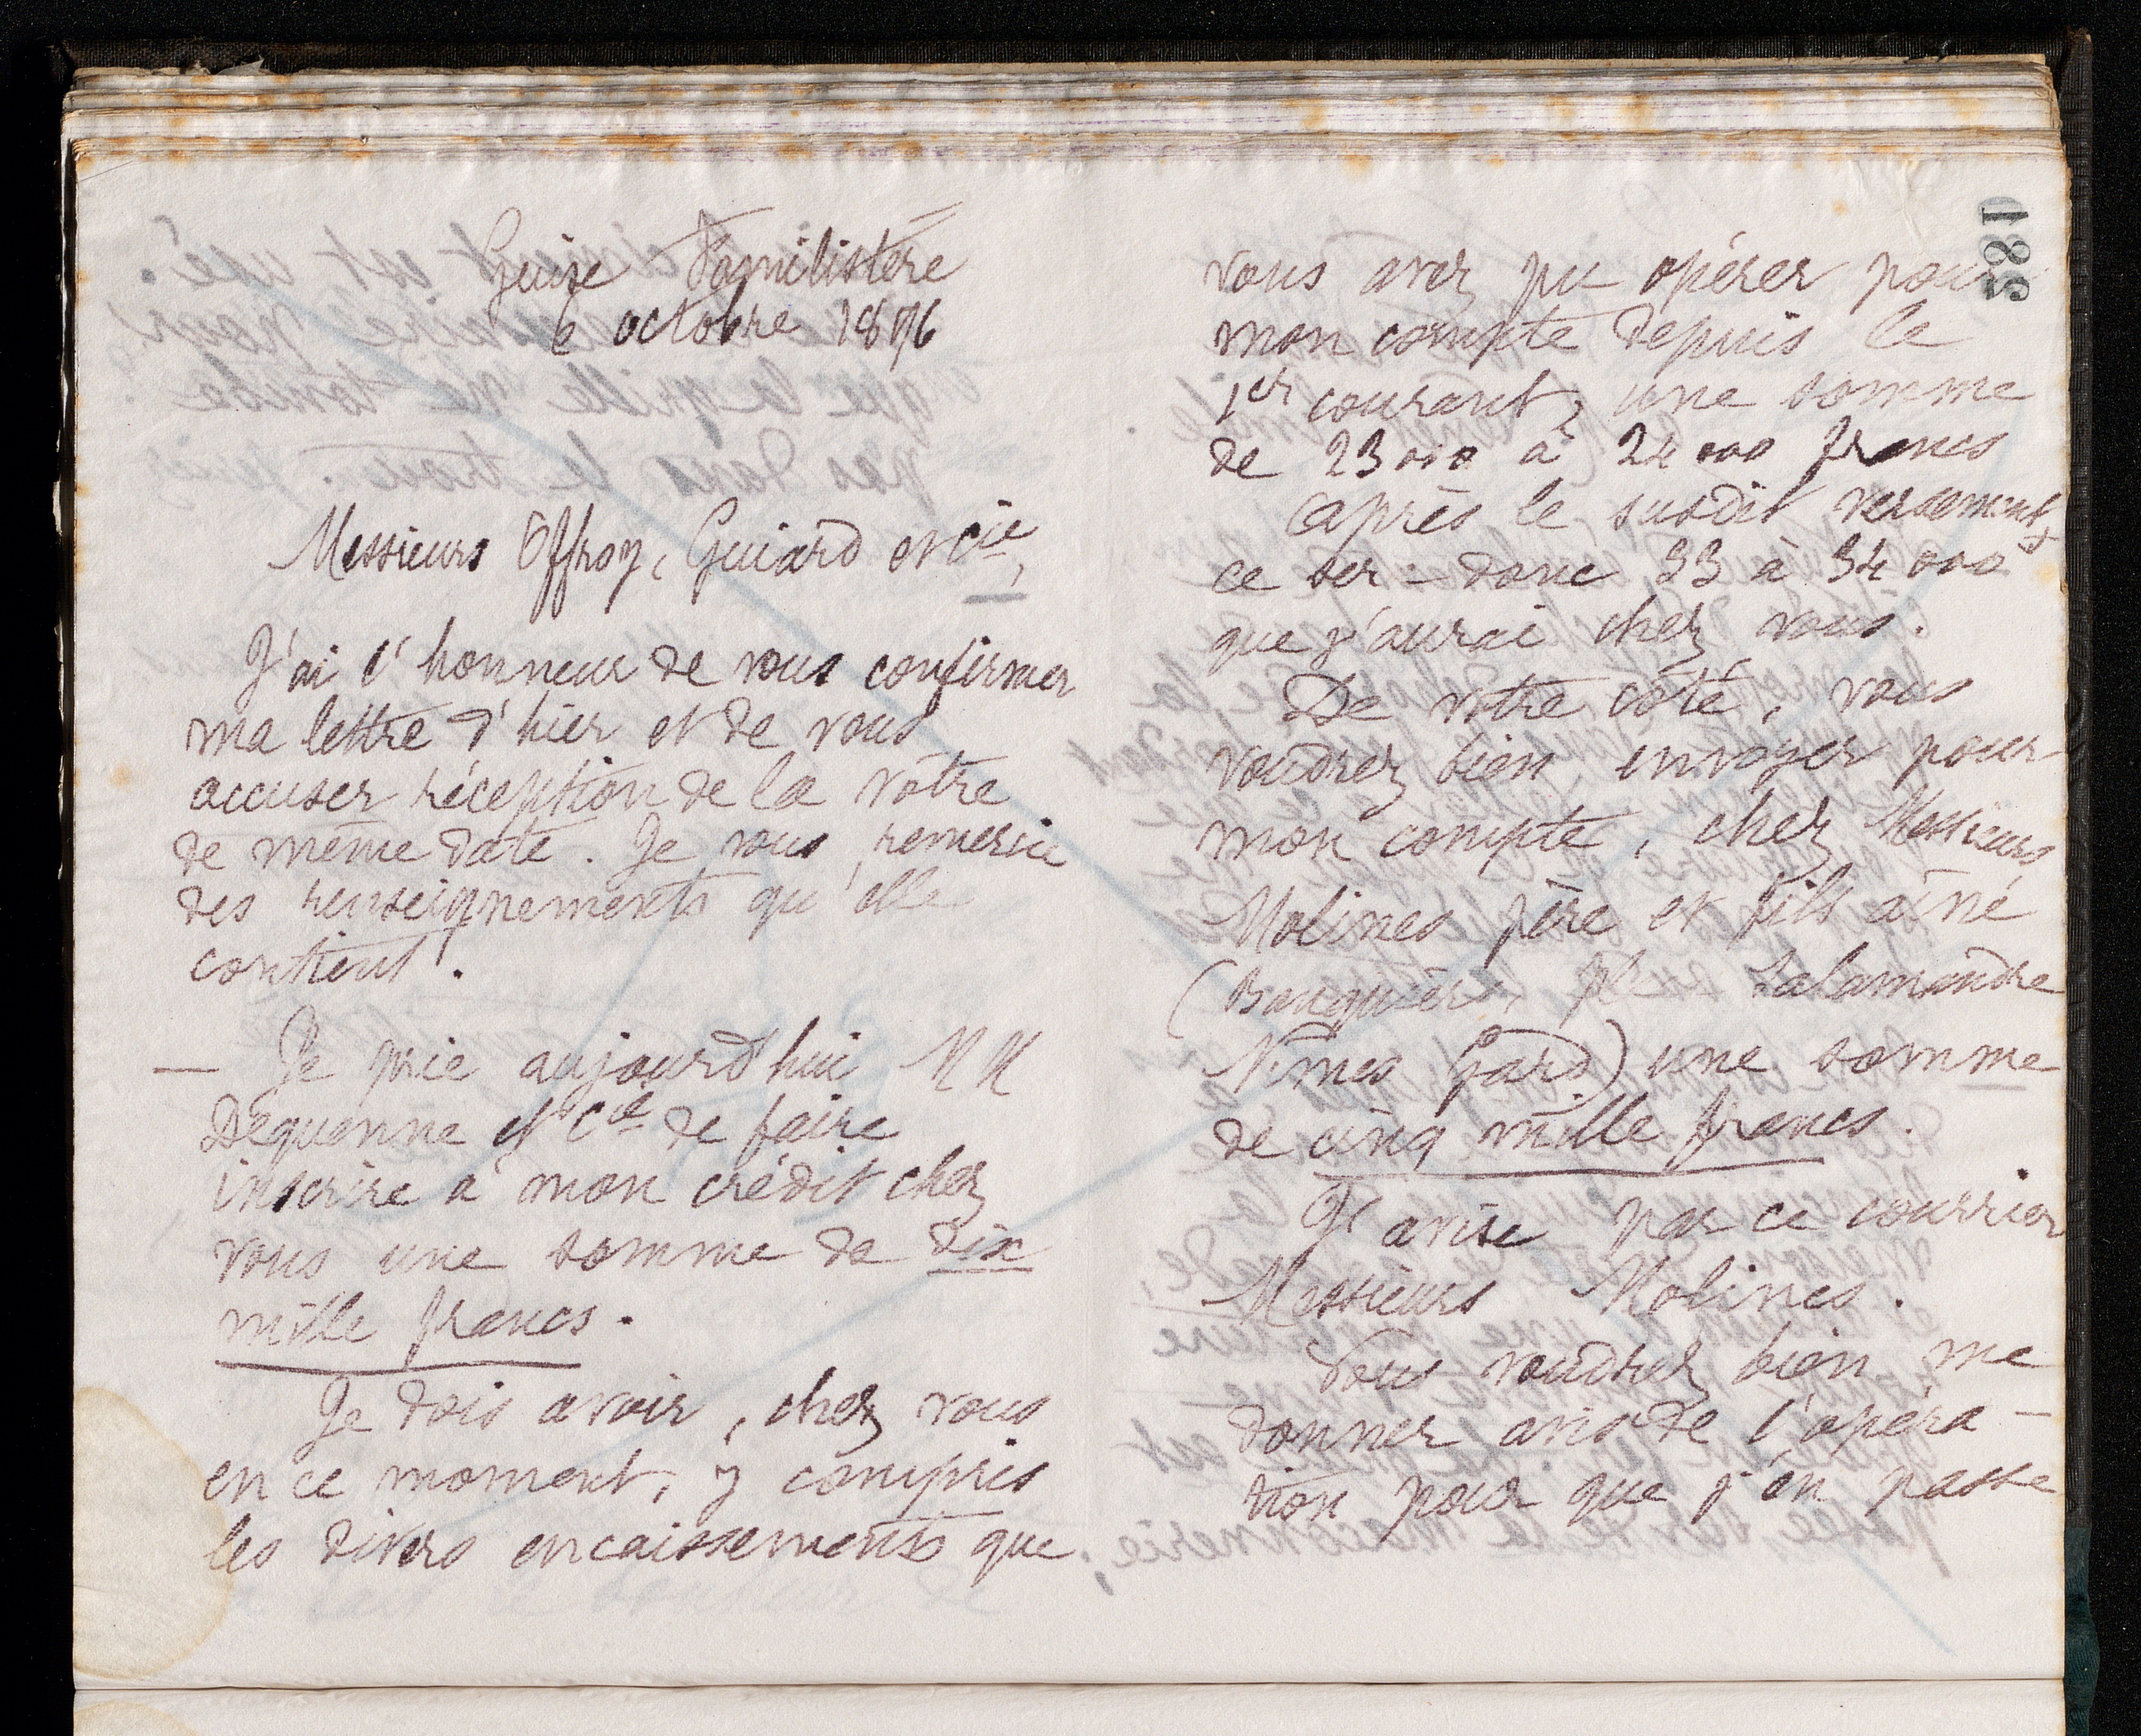 Guise Familistère
6 octobre 1876
Messieurs Offroy, Guiard et Cie,
J'ai l'honneur de vous confirmer
ma lettre d'hier et de vous
accuser réception de la vôtre
de même date. Je vous remercie
des renseignements qu'elle
contient.
— Je prie aujourd'hui MM
Dequenne et Cie de faire
inscrire à mon crédit chez
vous une somme de dix
mille francs.
Je dois avoir, chez vous
en ce moment, y compris
les divers encaissements que
1885
vous avez pu opérer pour
mon compte depuis le
1er courant, une somme
de 23000 à 24000 francs
Après le susdit versement,
ce sera donc 33 à 34000
que j'aurai chez vous.
De votre côté, vous
voudrez bien envoyer pour
mon compte, chez Messieurs
Molines père et fils aîné
(Banquiers, Salamandre
Nîmes Gard) une somme
de cinq mille francs.
J'avise par ce courrier
Messieurs Molines.
Vous voudrez bien me
donner avis de l'opéra-
tion pour que j'en passe